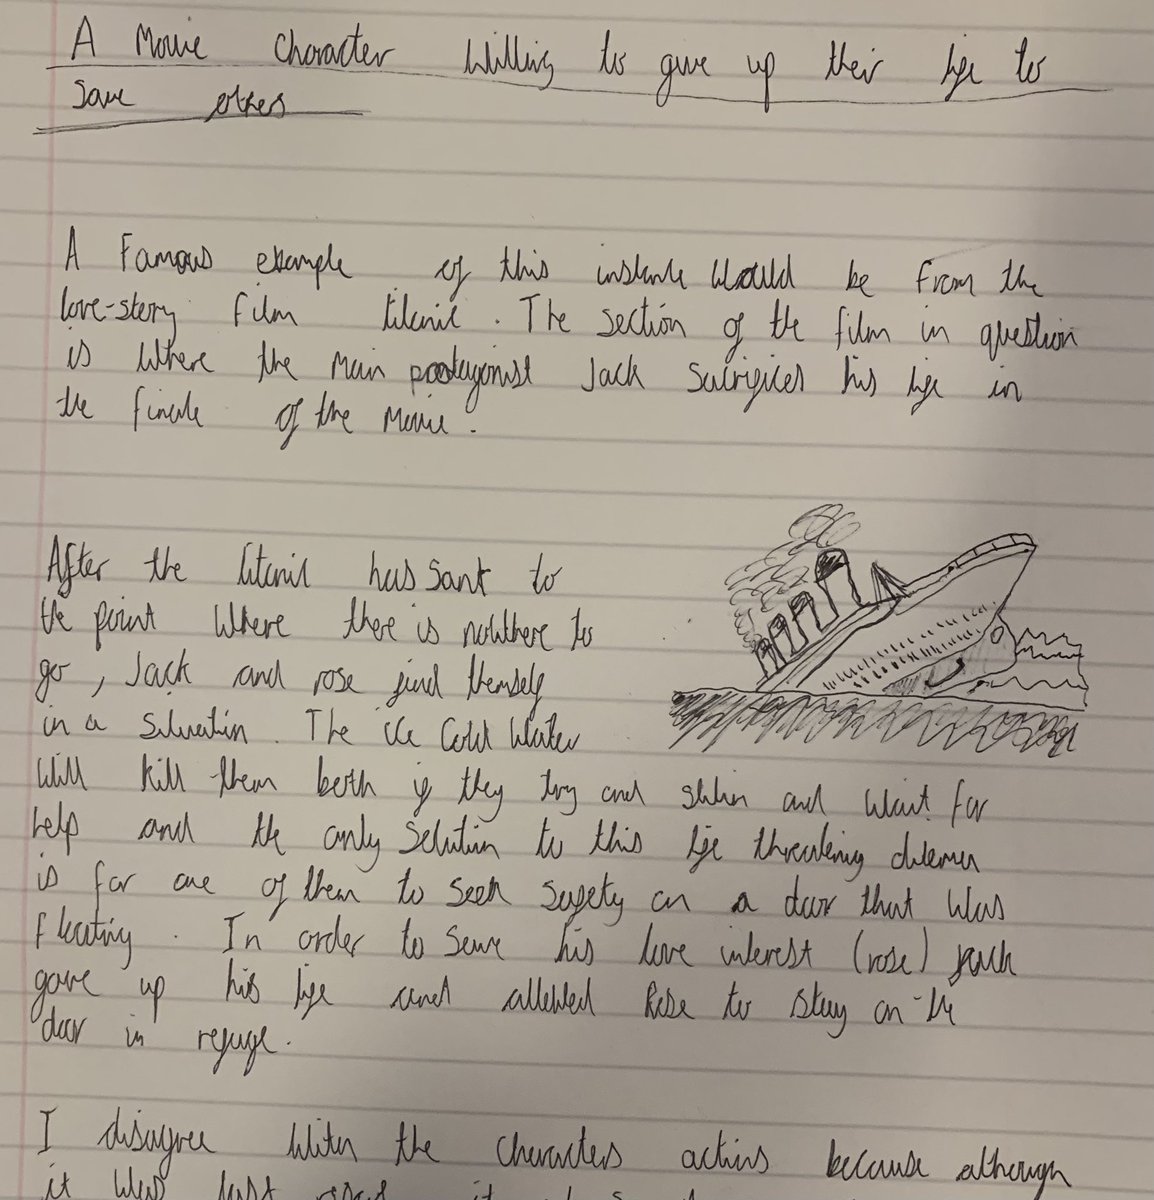 A Movie Character Willing to give up their life to
Save others
A Famous example of this instance Would be From the
love-story film titanic. The section of the film in question
is where the main protagonist Jack Sacrifices his life in
the finale of the Movie.
After the titanic has sank to
the point Where there is nowhere to
go, Jack and rose find themself
in a situation. The ice cold water
will kill them both if they try and and wait for
help and the only solution to this life threatening
is for one of them to seek safety on a door that was
floating. In order to save his love interest (rose) jack
gave up his life and allowed Rose to stay on the
door in refuge.
I disagree with the characters actions because although
it was